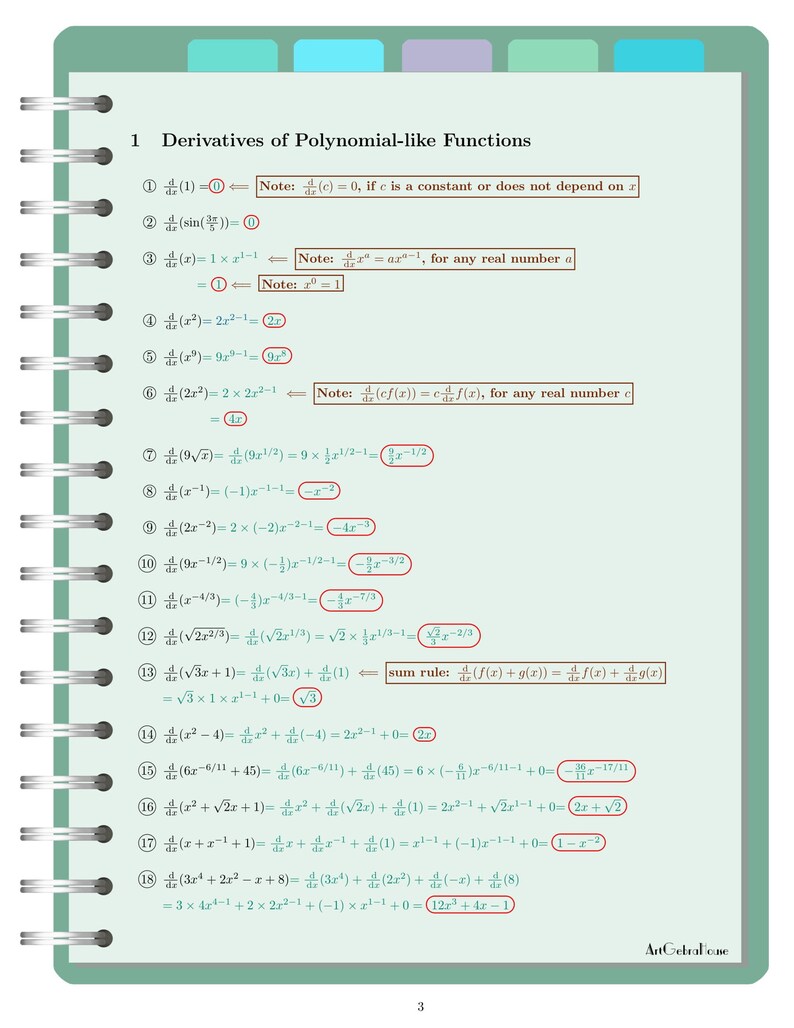 1 Derivatives of Polynomial-like Functions
① d/dx(1) = 0 ⟸ Note: d/dx(c) = 0, if c is a constant or does not depend on x
② d/dx(sin(3π/5)) = 0
③ d/dx(x) = 1 × x^{1−1} ⟸ Note: d/dx x^a = ax^{a−1}, for any real number a
= 1 ⟸ Note: x^0 = 1
④ d/dx(x^2) = 2x^{2−1} = 2x
⑤ d/dx(x^9) = 9x^{9−1} = 9x^8
⑥ d/dx(2x^2) = 2 × 2x^{2−1} ⟸ Note: d/dx(cf(x)) = c d/dx f(x), for any real number c
= 4x
⑦ d/dx(9√x) = d/dx(9x^{1/2}) = 9 × 1/2 x^{1/2−1} = 9/2 x^{−1/2}
⑧ d/dx(x^{−1}) = (−1)x^{−1−1} = −x^{−2}
⑨ d/dx(2x^{−2}) = 2 × (−2)x^{−2−1} = −4x^{−3}
⑩ d/dx(9x^{−1/2}) = 9 × (−1/2)x^{−1/2−1} = −9/2 x^{−3/2}
⑪ d/dx(x^{−4/3}) = (−4/3)x^{−4/3−1} = −4/3 x^{−7/3}
⑫ d/dx(√(2x^{2/3})) = d/dx(√2x^{1/3}) = √2 × 1/3 x^{1/3−1} = √2/3 x^{−2/3}
⑬ d/dx(√3x + 1) = d/dx(√3x) + d/dx(1) ⟸ sum rule: d/dx(f(x) + g(x)) = d/dx f(x) + d/dx g(x)
= √3 × 1 × x^{1−1} + 0 = √3
⑭ d/dx(x^2 − 4) = d/dx x^2 + d/dx(−4) = 2x^{2−1} + 0 = 2x
⑮ d/dx(6x^{−6/11} + 45) = d/dx(6x^{−6/11}) + d/dx(45) = 6 × (−6/11)x^{−6/11−1} + 0 = −36/11 x^{−17/11}
⑯ d/dx(x^2 + √2x + 1) = d/dx x^2 + d/dx(√2x) + d/dx(1) = 2x^{2−1} + √2x^{1−1} + 0 = 2x + √2
⑰ d/dx(x + x^{−1} + 1) = d/dx x + d/dx x^{−1} + d/dx(1) = x^{1−1} + (−1)x^{−1−1} + 0 = 1 − x^{−2}
⑱ d/dx(3x^4 + 2x^2 − x + 8) = d/dx(3x^4) + d/dx(2x^2) + d/dx(−x) + d/dx(8)
= 3 × 4x^{4−1} + 2 × 2x^{2−1} + (−1) × x^{1−1} + 0 = 12x^3 + 4x − 1
ArtGebraHouse
3